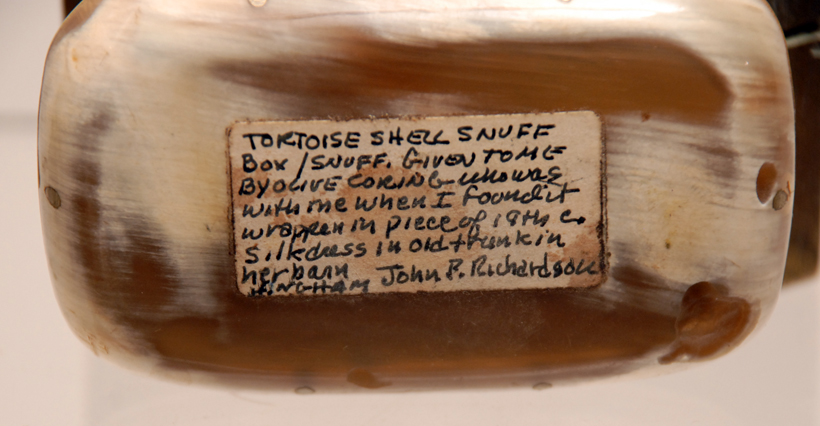 TORTOISE SHELL SNUFF
BOX / SNUFF. GIVEN TO ME
BY OLIVE CORING who was
with me when I found it
wrappen in piece of 19th c.
silk dress in old trunk in
her barn
HINGHAM John P. Richardson